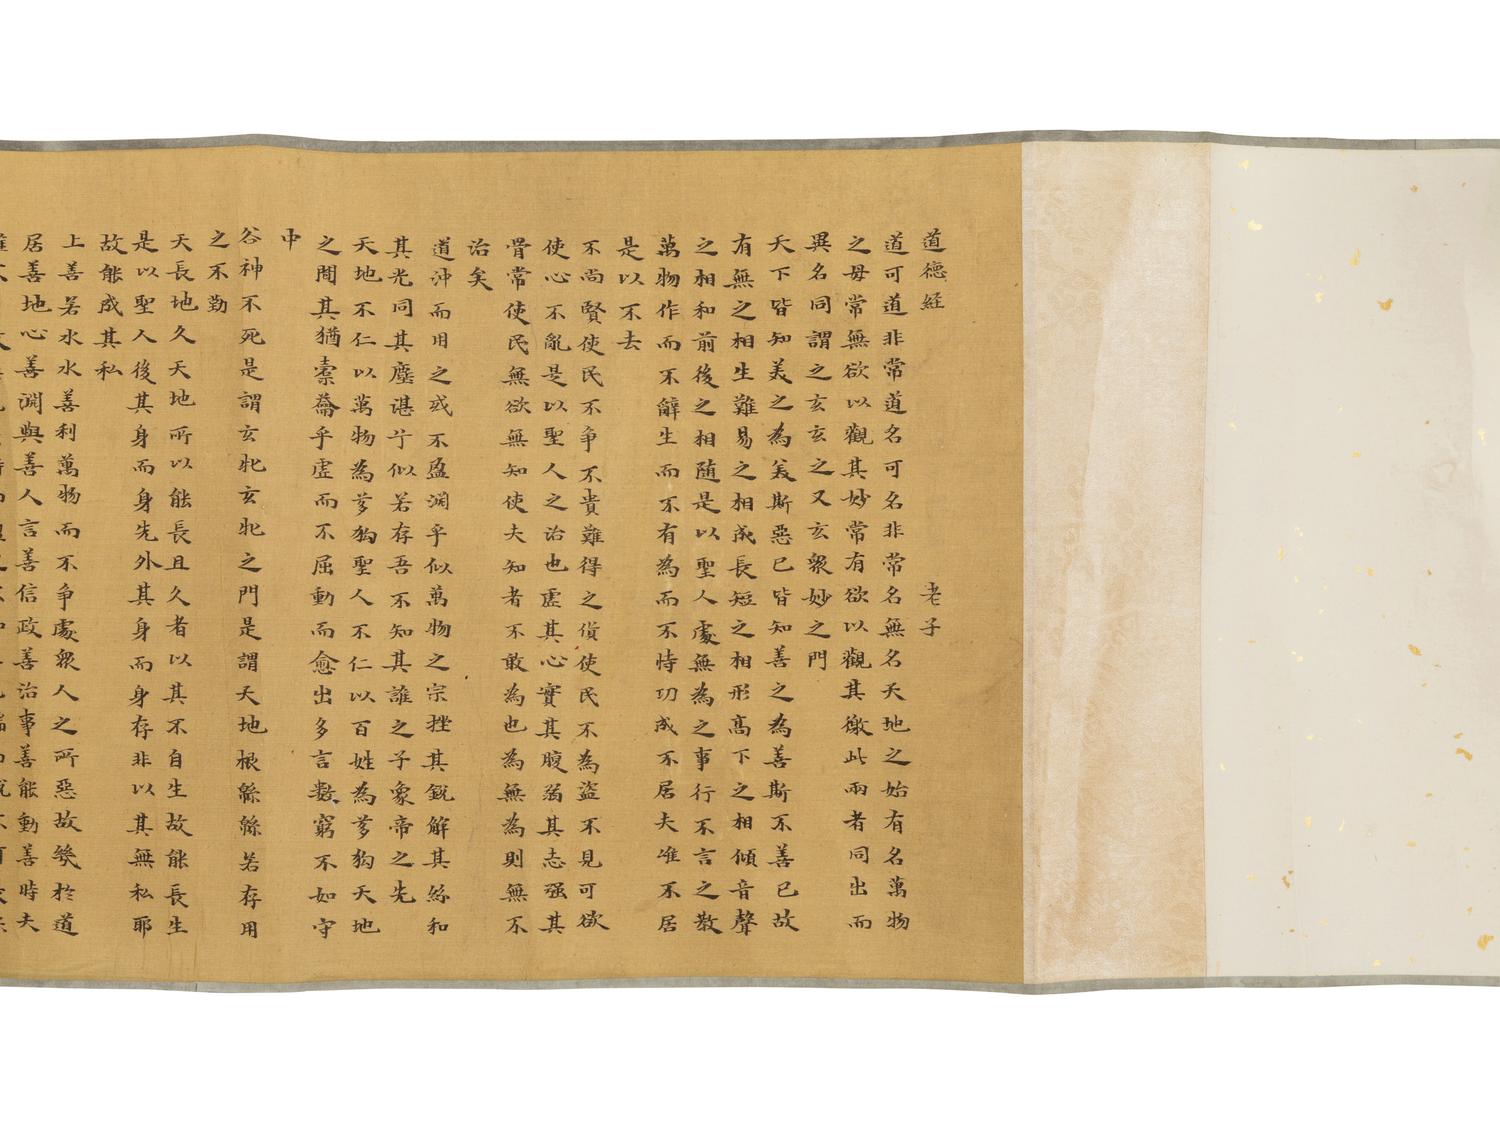 道德經 老子
道可道非常道名可名非常名無名天地之始有名萬物
之母常無欲以觀其妙常有欲以觀其徼此兩者同出而
異名同謂之玄玄之又玄衆妙之門
天下皆知美之為美斯惡已皆知善之為善斯不善已故
有無之相生難易之相成長短之相形高下之相傾音聲
之相和前後之相随是以聖人處無為之事行不言之教
萬物作而不辭生而不有為而不恃功成不居夫唯不居
是以不去
不尚賢使民不争不貴難得之貨使民不為盜不見可欲
使心不亂是以聖人之治也虛其心實其腹弱其志强其
骨常使民無欲無知使夫知者不敢為也為無為則無不
治矣
道沖而用之或不盈淵乎似萬物之宗挫其銳解其紛和
其光同其塵湛兮似若存吾不知其誰之子象帝之先
天地不仁以萬物為芻狗聖人不仁以百姓為芻狗天地
之間其猶橐籥乎虛而不屈動而愈出多言數窮不如守
中
谷神不死是謂玄牝玄牝之門是謂天地根緜緜若存用
之不勤
天長地久天地所以能長且久者以其不自生故能長生
是以聖人後其身而身先外其身而身存非以其無私耶
故能成其私
上善若水水善利萬物而不争處衆人之所惡故幾於道
居善地心善淵與善人言善信政善治事善能動善時夫